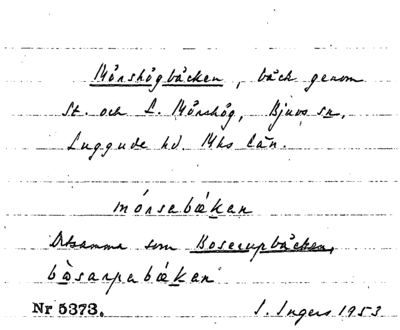 Mörshögbäcken, bäck genom
St. och L. Mörshög, Bjuvs sn,
Luggude hd. Mhs län.
mórsebǽkan
Detsamma som Boserupbäcken,
bosarpabǽkan
Nr 5373. I. Ingers 1953